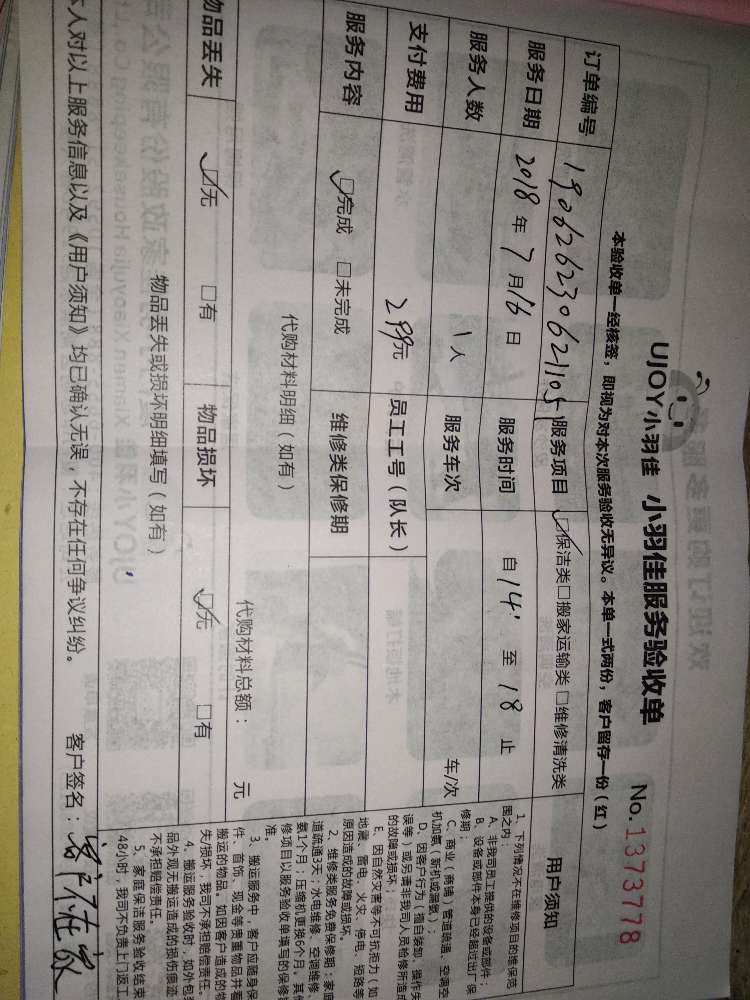 UJOY小羽佳 小羽佳服务验收单
No.1373778
本验收单一经核签，即视为对本次服务验收无异议。本单一式两份，客户留存一份（红）
订单编号 190626230621105 服务项目 ☑保洁类□搬家运输类□维修清洗类
服务日期 2018年7月16日 服务时间 自14:至18止
服务人数 1人 服务车次 车/次
支付费用 299元 员工工号（队长）
服务内容 ☑完成 □未完成 维修类保修期
代购材料明细（如有） 代购材料总额： 元
物品丢失 ☑无 □有 物品损坏 ☑无 □有
物品丢失或损坏明细填写（如有）
本人对以上服务信息以及《用户须知》均已确认无误，不存在任何争议纠纷。 客户签名：客户不在家
用户须知
1、下列情况不在维修项目的维保范
围之内：
A、非我司员工提供的设备或部件；
B、设备或部件本身已经超过出厂保
修期；
C、商业（商铺）管道疏通、空调空
机加氟（新机或漏氟）；
D、因客户行为（擅自装卸、操作失
误等）或另请非我司人员检修所造成
的故障或损坏；
E、因自然灾害等不可抗拒力（如
地震、雷电、火灾、停电、短路等
原因造成的故障或损坏。
2、维修类服务免费保修期：家庭
道疏通3天；水电维修、空调维修
要1个月；压缩机更换6个月，其他
修项目以服务验收单填写的保修期
准。
3、搬运服务中，客户应随身保
件、首饰、现金等贵重物品并看
搬运的物品。如因客户造成的物
失/损坏，我司不承担赔偿责任。
4、搬运服务验收时，如外包装
品外观无搬运造成的损伤痕迹
不承担赔偿责任。
5、家庭保洁服务验收结束
48小时，我司不负责上门返工